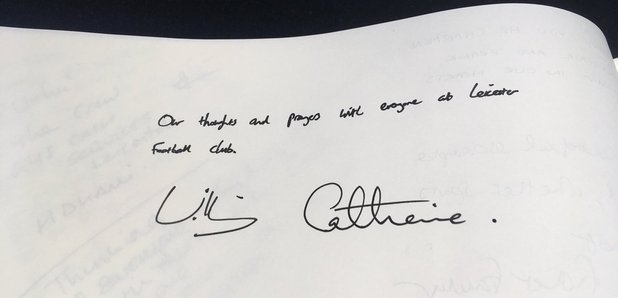 Our thoughts and prayers with everyone at Leicester
Football club.
William Catherine.